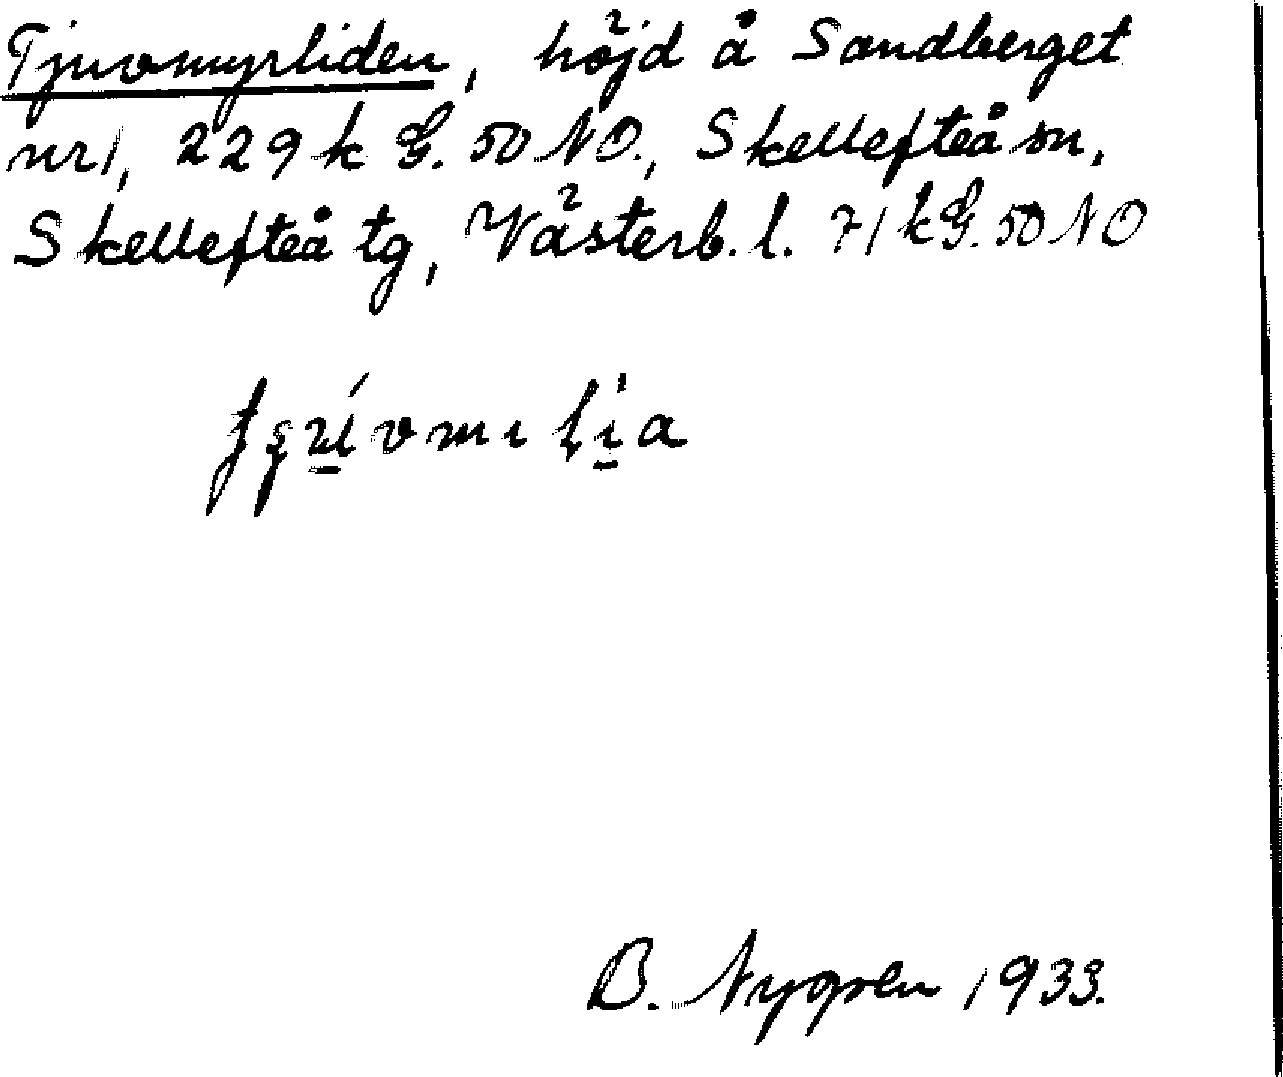 Tjuvmyrliden, höjd å Sandberget
nr 1, 229 k G. 50 NO., Skellefteå sn,
Skellefteå tg, Västerb. l. 71 k G. 50 NO
B. Nygren 1933.